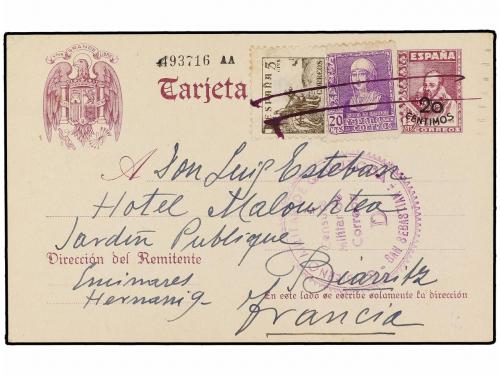 493716 AA
Tarjeta
ESPAÑA 5
CORREOS
20
ESPAÑA
20
CENTIMOS
CORREOS
A Don Luis Esteban
Hotel
Jardin Publique
Biarritz
Francia
Dirección del Remitente
Hernani 9
En este lado se escribe solamente la dirección
Censura
Militar
Correos
D
SAN SEBASTIAN